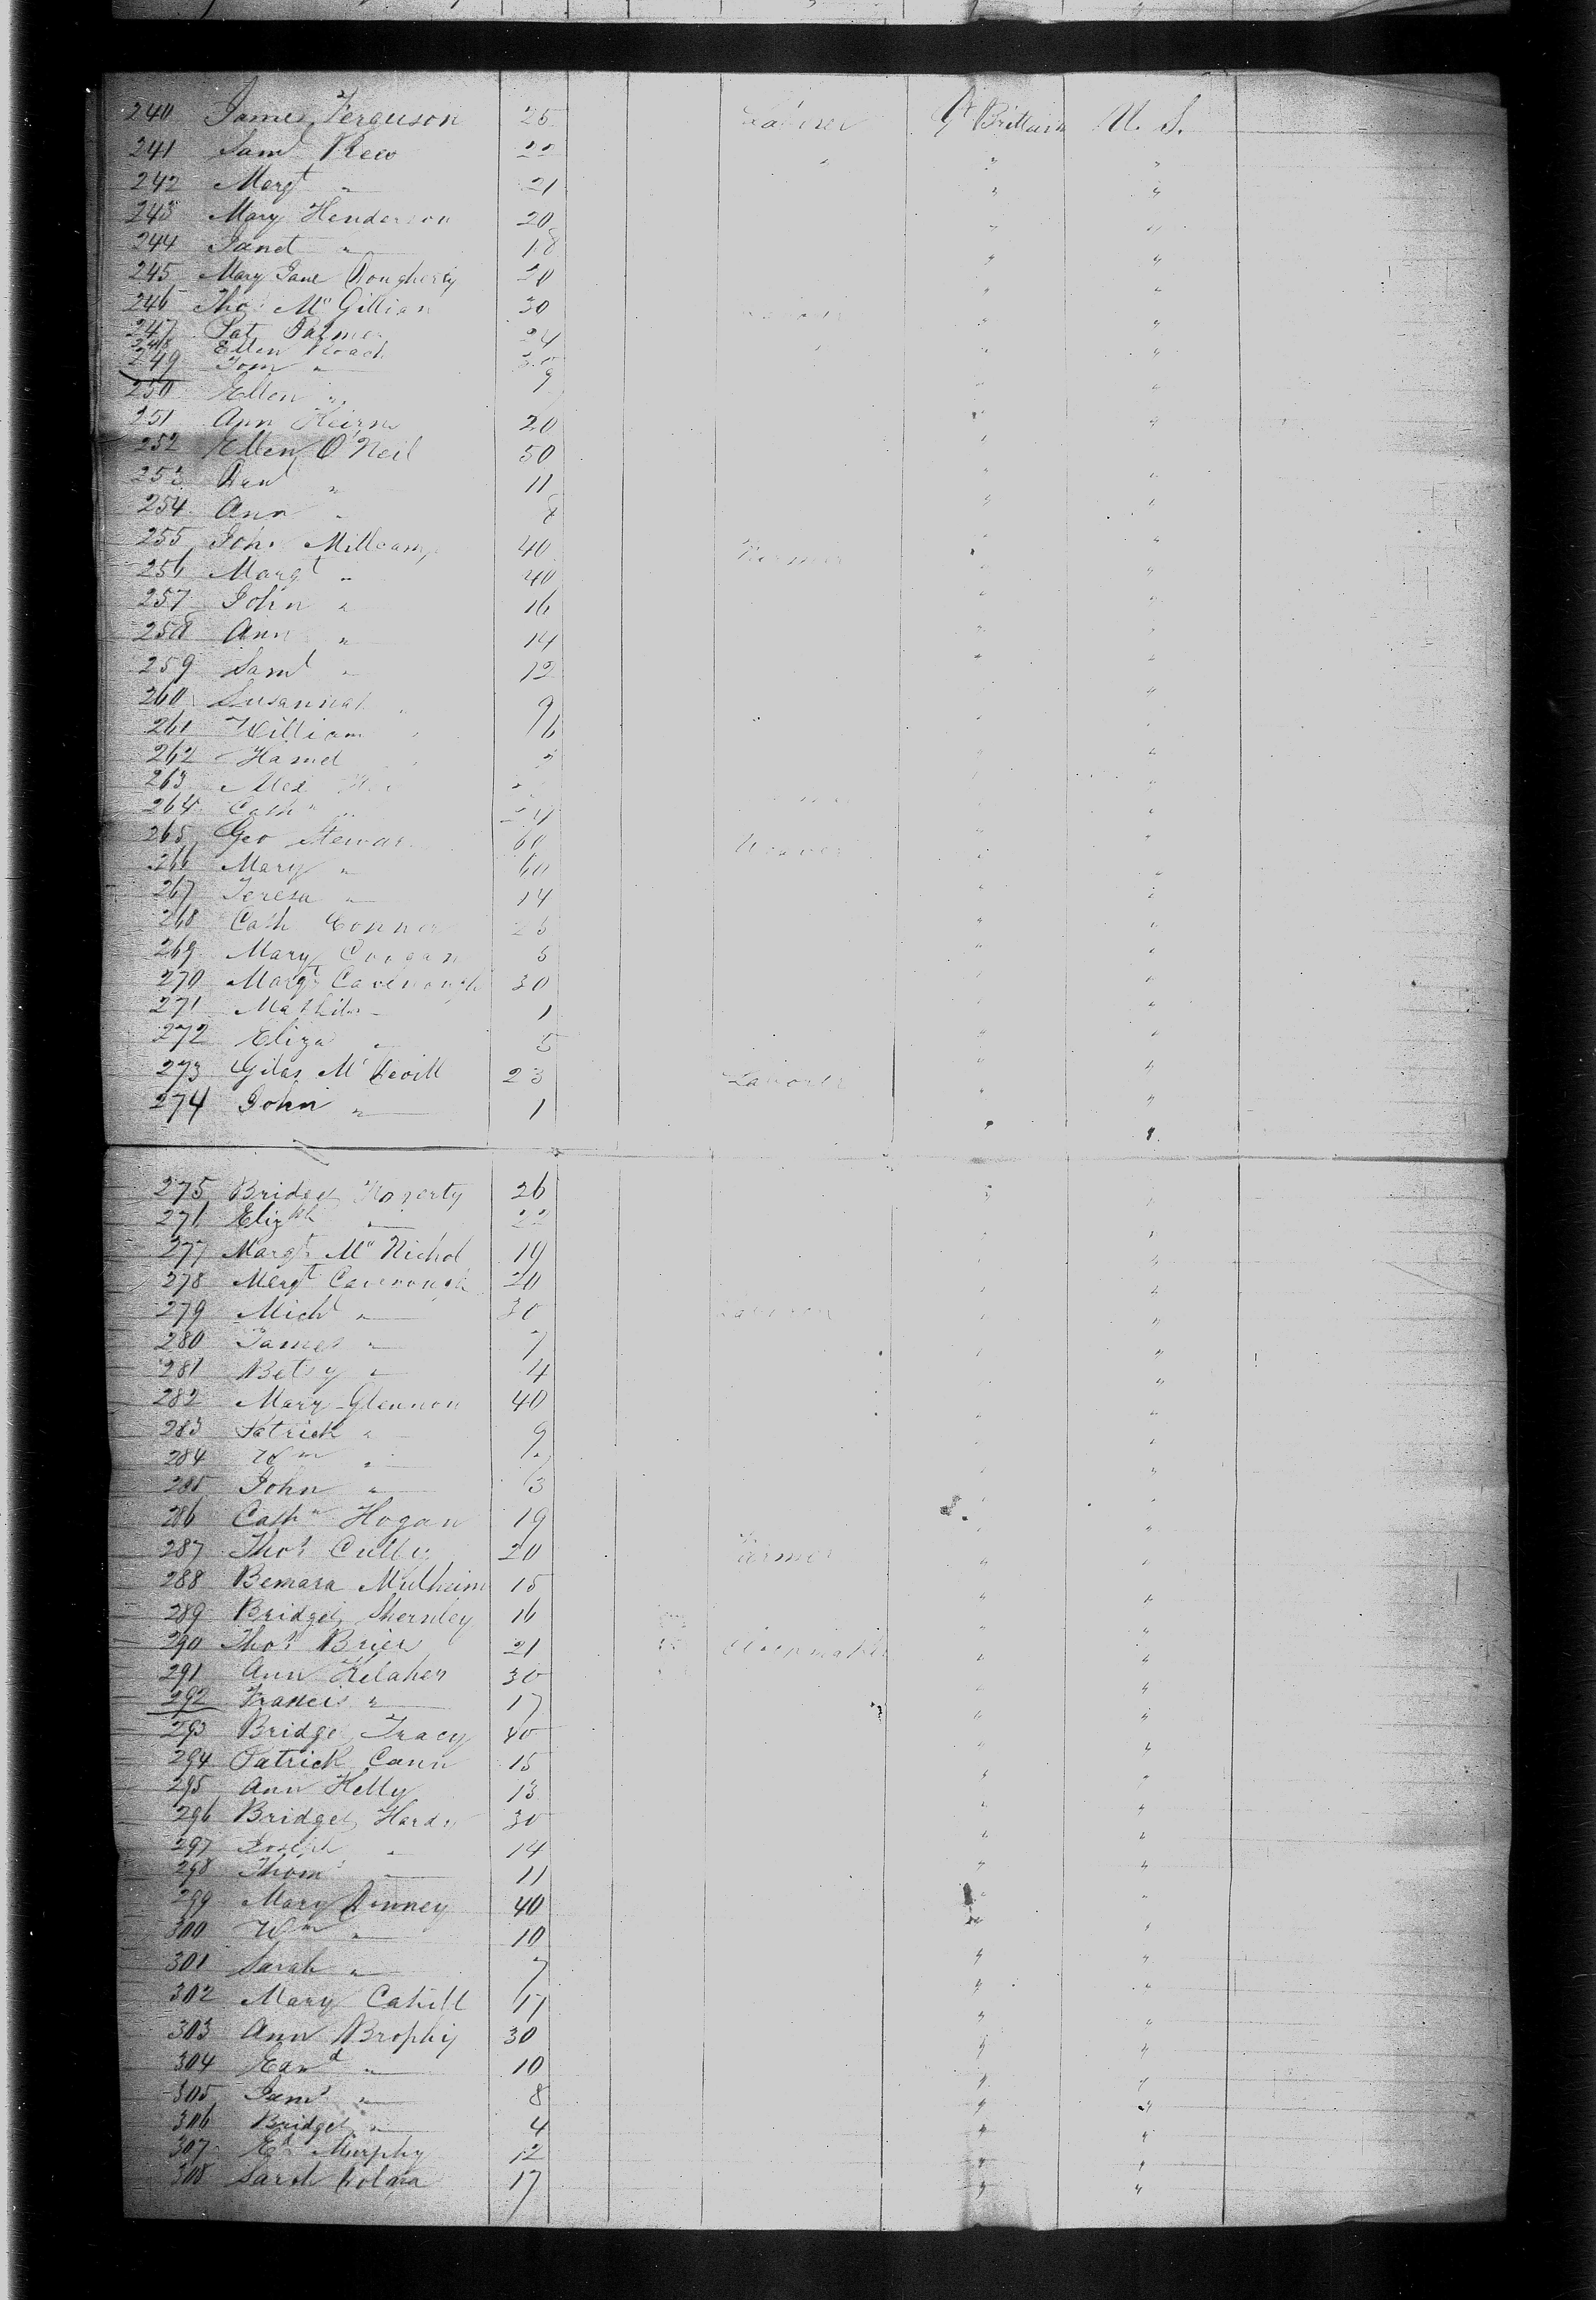 240 James Ferguson 25 Laborer Gt Brittain U. S.
241 Saml Rew 22 " " "
242 Margt " 21 " "
243 Mary Henderson 20 " "
244 Janet " 18 " "
245 Mary Jane Dougherty 20 " "
246 Thos McGillian 30 " "
247 Pat Palmer 24 " "
248 Ellen Roach 30
249 Tom " 9 " "
250 Ellen " " "
251 Ann Keirns 20 " "
252 Ellen O'Neil 50 "
253 Dan " 11 " "
254 Ann " 8 " "
255 John Millcamp 40 " "
256 Margt " 40 " "
257 John " 16 " "
258 Ann " 14 " "
259 Saml " 12 " "
260 Susannah " 9 "
261 William " 6 " "
262 "
263 Alex "
264 Cathn " "
265 Geo Stewart 60 Weaver " "
266 Mary " 60 " "
267 Teresa " 14 " "
268 Cath Conner 25 " "
269 Mary 5 " "
270 Margt Cavenough 30 " "
271 1 "
272 Eliza " 5 " "
273 Giles McDevitt 23 Laborer " "
274 John " 1 " "
275 Bridget Hogerty 26 "
271 Elizbh " 22
277 Margt McNichol 19 " "
278 Margt Cavenough 20 " "
279 Michl " 30 Laborer " "
280 James " 7 " "
281 Betsy " 4 "
282 Mary Glennon 40 " "
283 Patrick " 9 " "
284 Wm " "
285 John " 3 " "
286 Cathn Hogan 19 "
287 Thos Cully 20 Farmer " "
288 Mulheim 15 " "
289 Bridget Shernley 16 " "
290 Thos Brier 21 " "
291 Ann Kelaher 30 " "
292 Francis " 17 " "
293 Bridge Tracy 40 " "
294 Patrick Cann 15 " "
295 Ann Kelly 13 " "
296 Bridget Hardy 30 " "
297 Joseph " 14 " "
298 Thoms " 11 " "
299 Mary Dinney 40 " "
300 Wm " 10 " "
301 Sarah " 7 " "
302 Mary Cahill 17 " "
303 Ann Brophy 30 " "
304 Edwd " 10 " "
305 Jams " 8 " "
306 Bridget " 4 " "
307 Ed Murphy 12 " "
308 Sarah Dolan 17 " "